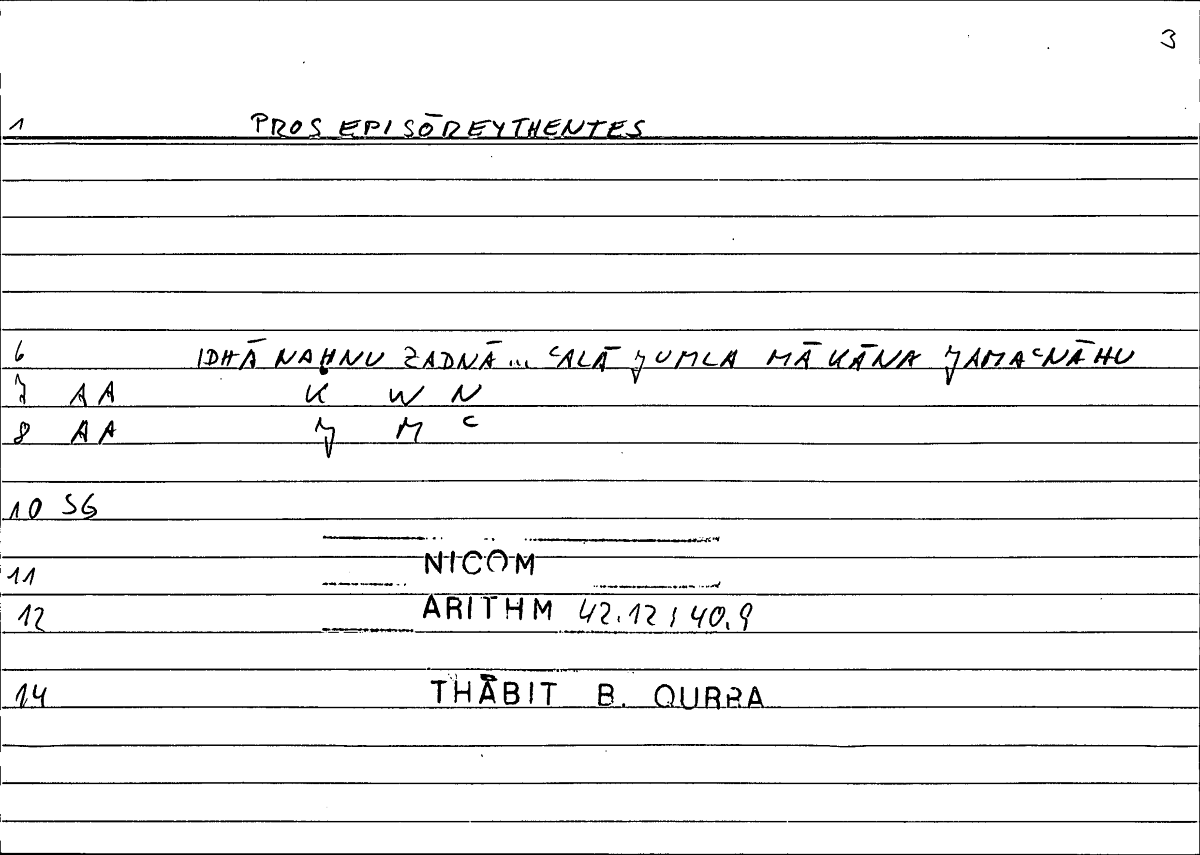 3
1 PROS EPISŌREYTHENTES
6 IDHĀ NAḤNU ZADNĀ... ʿALĀ JUMLA MĀ KĀNA JAMAʿNĀHU
7 AA K W N
8 AA J M ʿ
10 SG
11 NICOM
12 ARITHM 42.12 / 40.9
14 THĀBIT B. QURRA